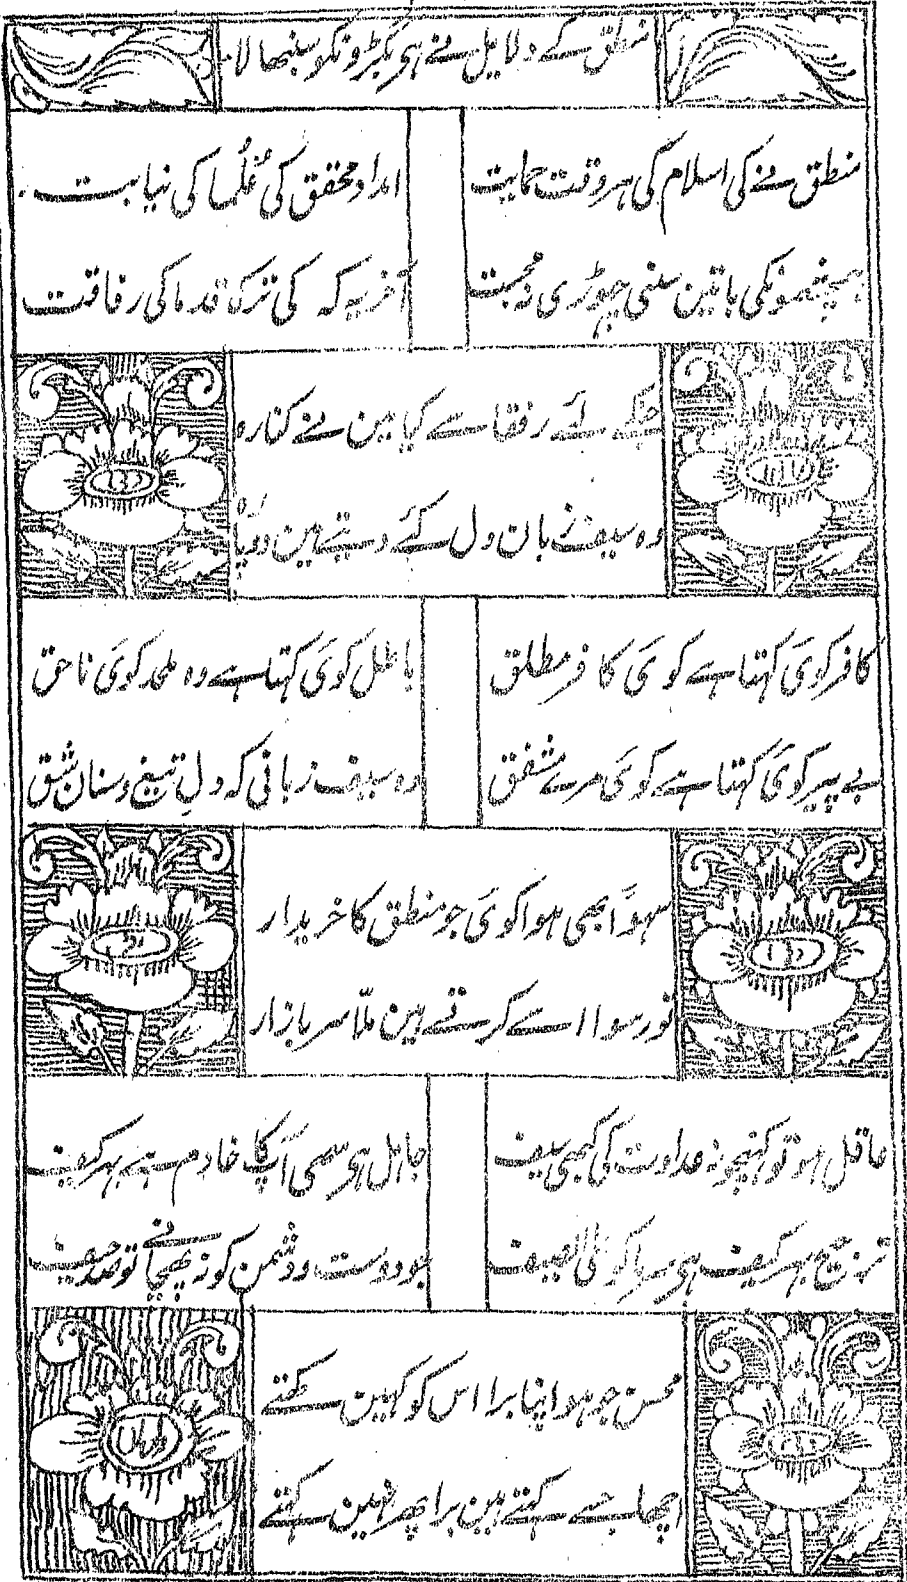 منطق کے دلایل نے ہی بگڑونکو سنبھالا
منطق نے کی اسلام کی ہر وقت حمایت
امداد محقق کی عُلُما کی نیابت
ہمچشمونکی باتین سنی چھوڑی نہ محبت
آخر یہ کہ کی ترک قدما کی رفاقت
جنکے لئے رفقا سے کیا مین نے کنارہ
وہ سیف زبان دل کئے دیتے ہین دوپارا
کافر کوئی کہتا ہے کوئی کافر مطلق
باطل کوئی کہتا ہے وہ ملحد کوئی ناحق
بے پیر کوئی کہتا ہے کوئی مرے مشفق
وہ سیف زبانی کہ دلِ تیغ و سنان شق
سہواً بھی ہوا کوئی جو منطق کا خریدار
خود رسوا اسے کرتے ہین ملّا سر بازار
عاقل ہو تو کھینچو نہ عداوت کی کبھی سیف
جاہل ہی سہی آپکا خادم ہے بہر کیف
ترجیح بہر کیف ہی برا کو علی الضیف
جو دوست و دشمن کو نہ پہچانے تو صد حیف
محسن جو ہو اپنا برا اس کو نہین کہتے
اچھا جسے کہتے ہین برا پھر نہین کہتے